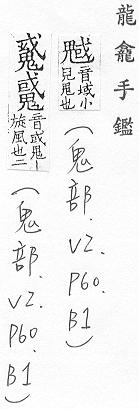 龍龕手鑑
音域小
兒鬼也
(鬼部.V2.P60.B1)
音或鬼
旋風也二
(鬼部.V2.P60.B1)